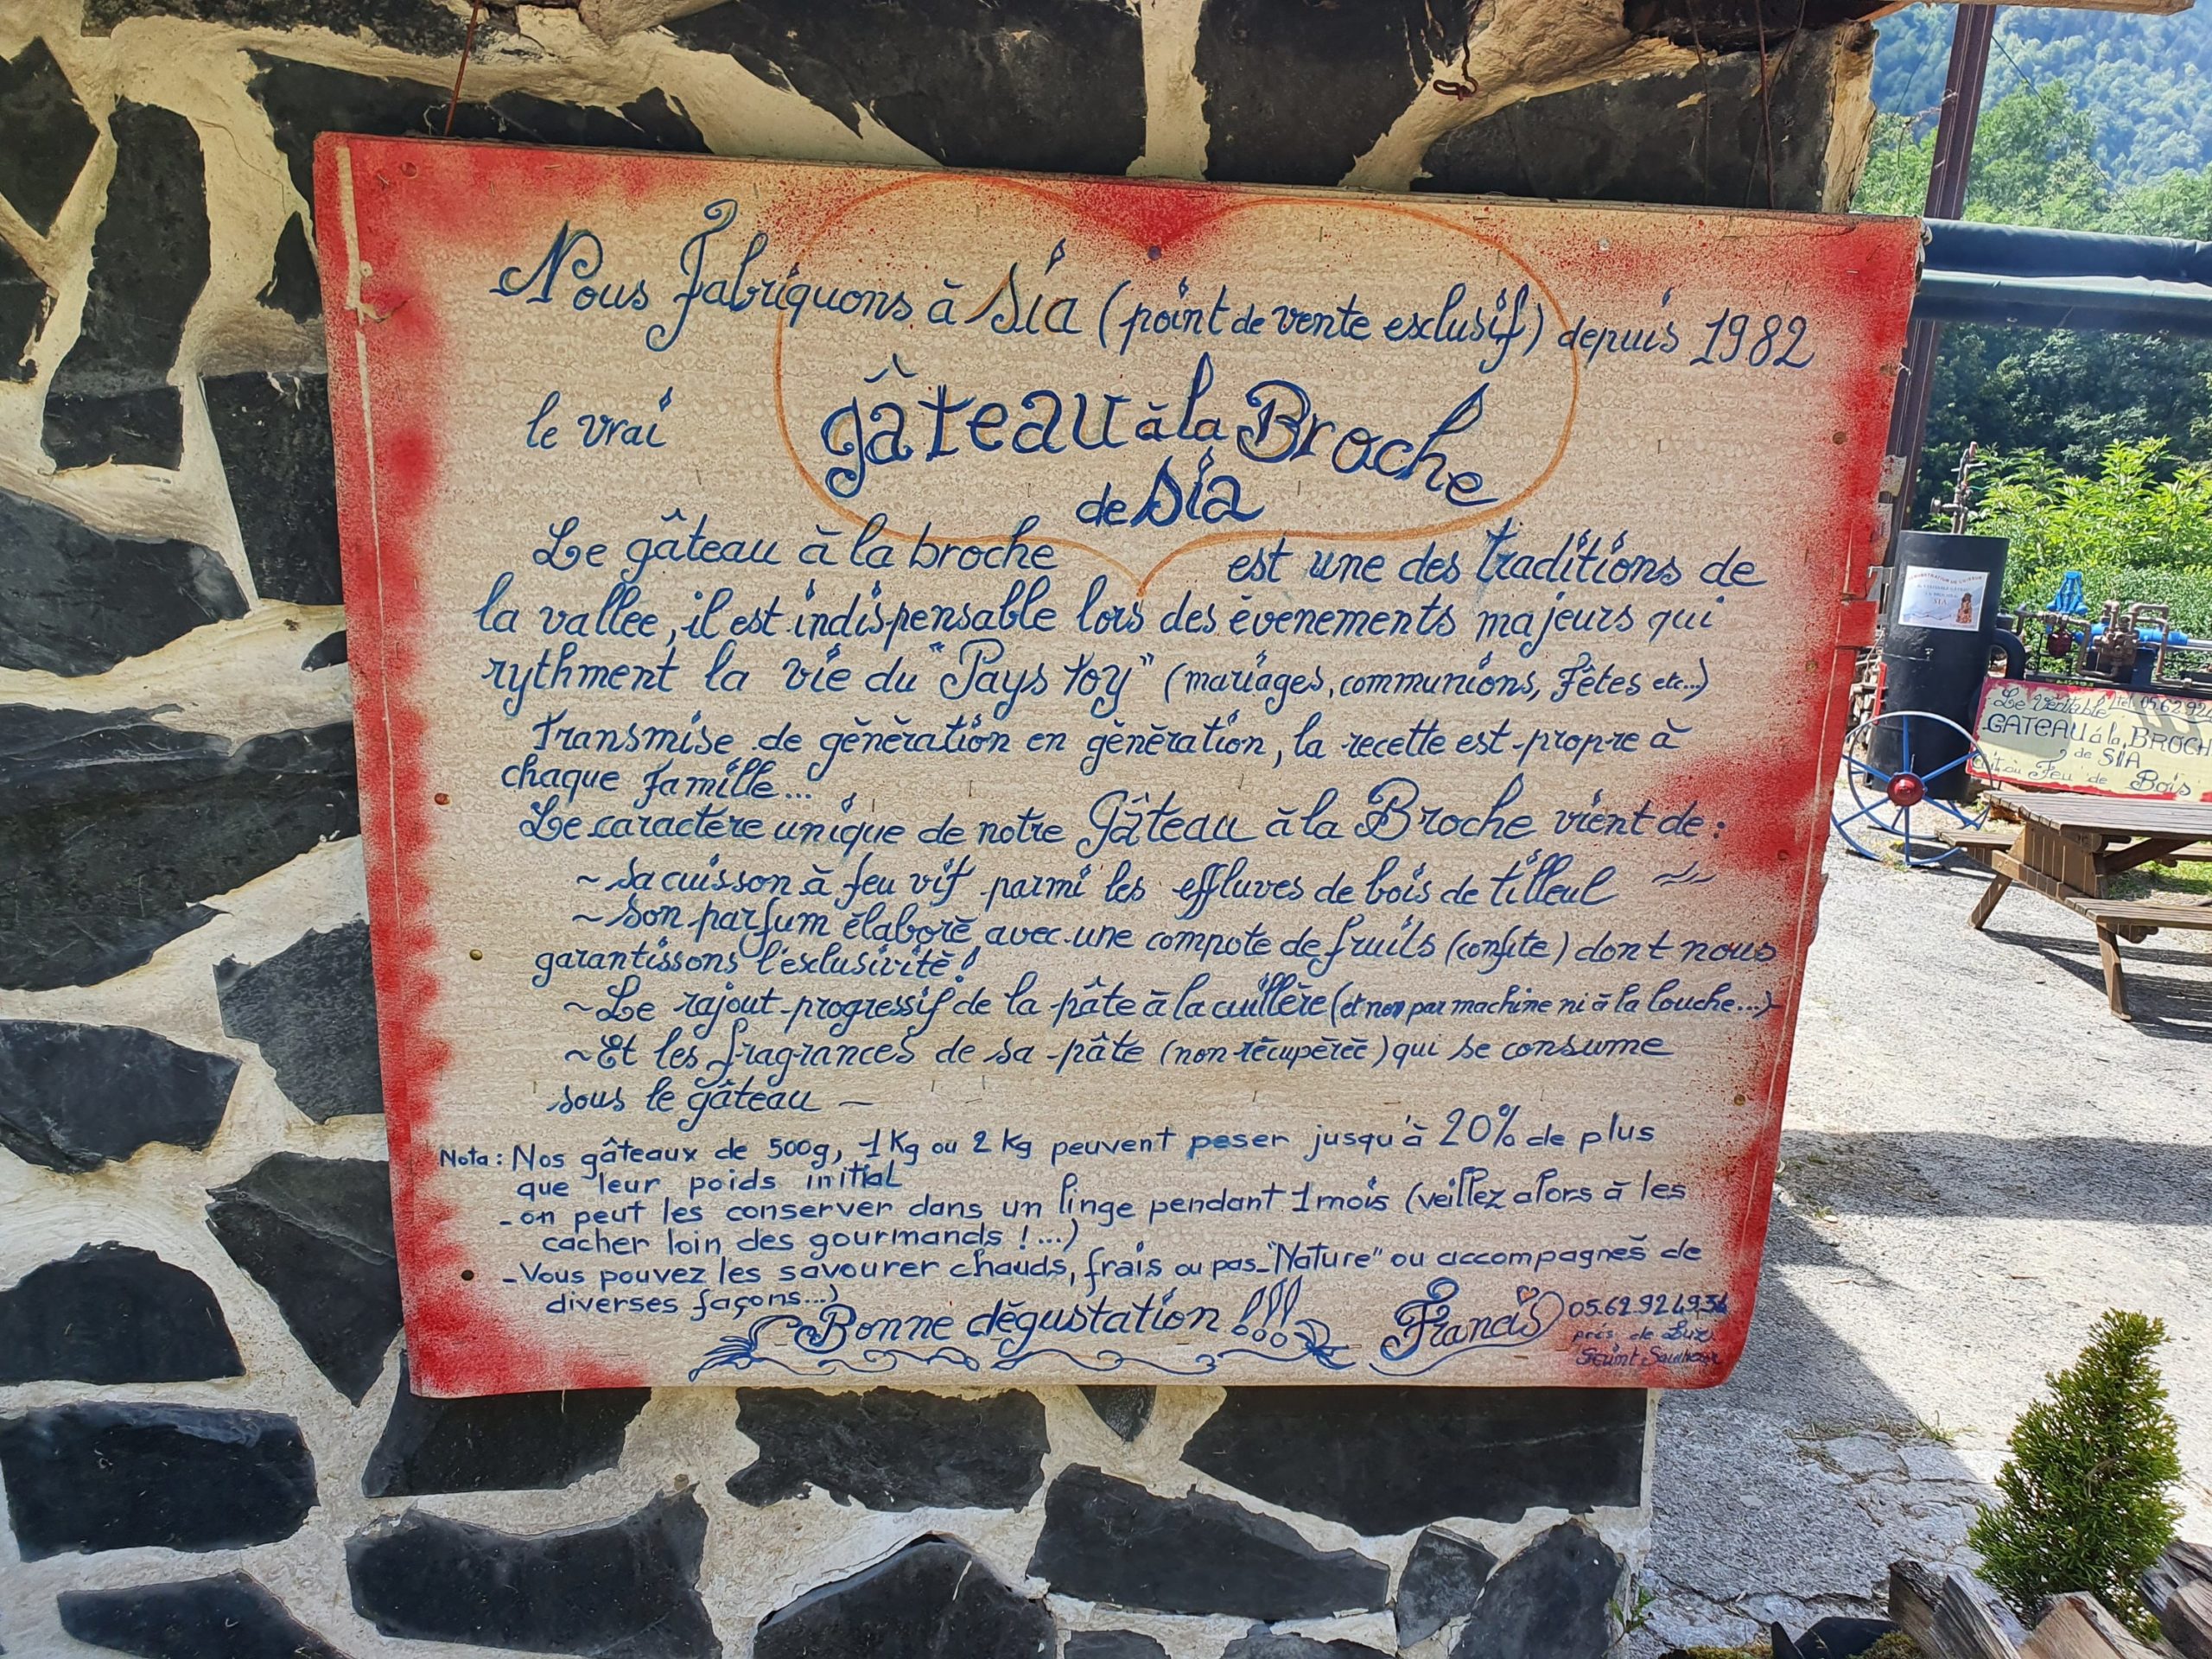 Nous fabriquons à Sia (point de vente exclusif) depuis 1982
le vrai
gâteau à la Broche
de Sia
Le gâteau à la broche est une des traditions de
la vallée, il est indispensable lors des évenements majeurs qui
rythment la vie du "Pays toy" (mariages, communions, fêtes etc...)
Transmise de génération en génération, la recette est propre à
chaque famille...
Le caractère unique de notre Gâteau à la Broche vient de :
~ Sa cuisson à feu vif parmi les effluves de bois de tilleul ~~
~ Son parfum élaboré avec une compote de fruits (confite) dont nous
garantissons l'exclusivité !
~ Le rajout progressif de la pâte à la cuillère (et non par machine ni à la louche...)
~ Et les fragrances de sa pâte (non récupérée) qui se consume
sous le gâteau ~
Nota : Nos gâteaux de 500g, 1 Kg ou 2 Kg peuvent peser jusqu'à 20% de plus
que leur poids initial
- on peut les conserver dans un linge pendant 1 mois (veillez alors à les
cacher loin des gourmands !...)
- Vous pouvez les savourer chauds, frais ou pas - "Nature" ou accompagnés de
diverses façons...)
Bonne dégustation !!!
Francis
près de Luz
Saint Sauveur
SIA
Le Véritable
GATEAU à la BROCH
de SIA
Feu de Bois